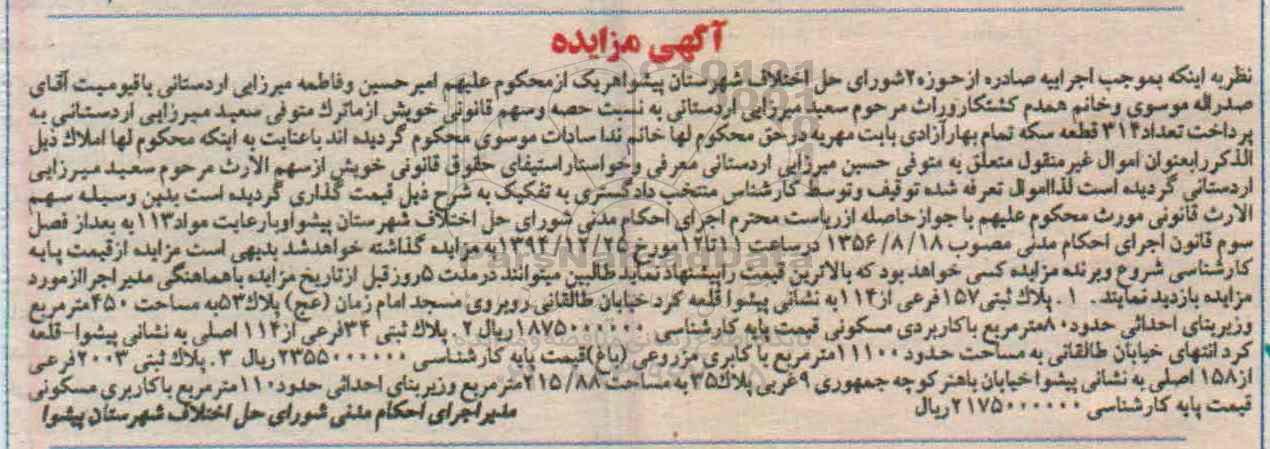 آگهی مزایده
نظربه اینکه بموجب اجراییه صادره ازحوزه۲شورای حل اختلاف شهرستان پیشواهریک ازمحکوم علیهم امیرحسین وفاطمه میرزایی اردستانی باقیومیت آقای
صدراله موسوی وخانم همدم کشتکاروراث مرحوم سعید میرزایی اردستانی به نسبت حصه وسهم قانونی خویش ازماترك متوفی سعید میرزایی اردستانی به
پرداخت تعداد۳۱۴قطعه سکه تمام بهارآزادی بابت مهریه درحق محکوم لها خانم ندا سادات موسوی محکوم گردیده اند باعنایت به اینکه محکوم لها املاك ذیل
الذکررابعنوان اموال غیرمنقول متعلق به متوفی حسین میرزایی اردستانی معرفی وخواستاراستیفای حقوق قانونی خویش ازسهم الارث مرحوم سعید میرزایی
اردستانی گردیده است لذااموال تعرفه شده توقیف وتوسط کارشناس منتخب دادگستری به تفکیک به شرح ذیل قیمت گذاری گردیده است بدین وسیله سهم
الارث قانونی مورث محکوم علیهم با جوازحاصله ازریاست محترم اجرای احکام مدنی شورای حل اختلاف شهرستان پیشواوبارعایت مواد۱۱۳به بعداز فصل
سوم قانون اجرای احکام مدنی مصوب ۱۳۵۶/۸/۱۸ درساعت ۱۱تا۱۲مورخ ۱۳۹۴/۱۲/۲۵به مزایده گذاشته خواهدشد بدیهی است مزایده ازقیمت پایه
کارشناسی شروع وبرنده مزایده کسی خواهد بود که بالاترین قیمت راپیشنهاد نماید طالبین میتوانند درمدت ۵روزقبل ازتاریخ مزایده باهماهنگی مدیر اجراازمورد
مزایده بازدید نمایند. ۱. پلاك ثبتی۱۵۷فرعی از۱۱۴به نشانی پیشوا قلعه کرد خیابان طالقانی روبروی مسجد امام زمان (عج) پلاك۵۳به مساحت ۴۵۰مترمربع
وزیربنای احداثی حدود۸۰مترمربع باکاربردی مسکونی قیمت پایه کارشناسی ۱۸۷۵۰۰۰۰۰۰ریال ۲. پلاك ثبتی ۳۴فرعی از۱۱۴ اصلی به نشانی پیشوا-قلعه
کرد انتهای خیابان طالقانی به مساحت حدود ۱۱۱۰۰مترمربع با کابری مزروعی (باغ)قیمت پایه کارشناسی ۲۳۵۵۰۰۰۰۰۰ریال ۳. پلاك ثبتی ۲۰۰۳فرعی
از۱۵۸ اصلی به نشانی پیشوا خیابان باهنر کوچه جمهوری ۹غربی پلاك۳۵به مساحت ۲۱۵/۸۸مترمربع وزیربنای احداثی حدود۱۱۰مترمربع باکاربری مسکونی
قیمت پایه کارشناسی ۲۱۷۵۰۰۰۰۰۰ریال مدیراجرای احکام مدنی شورای حل اختلاف شهرستان پیشوا